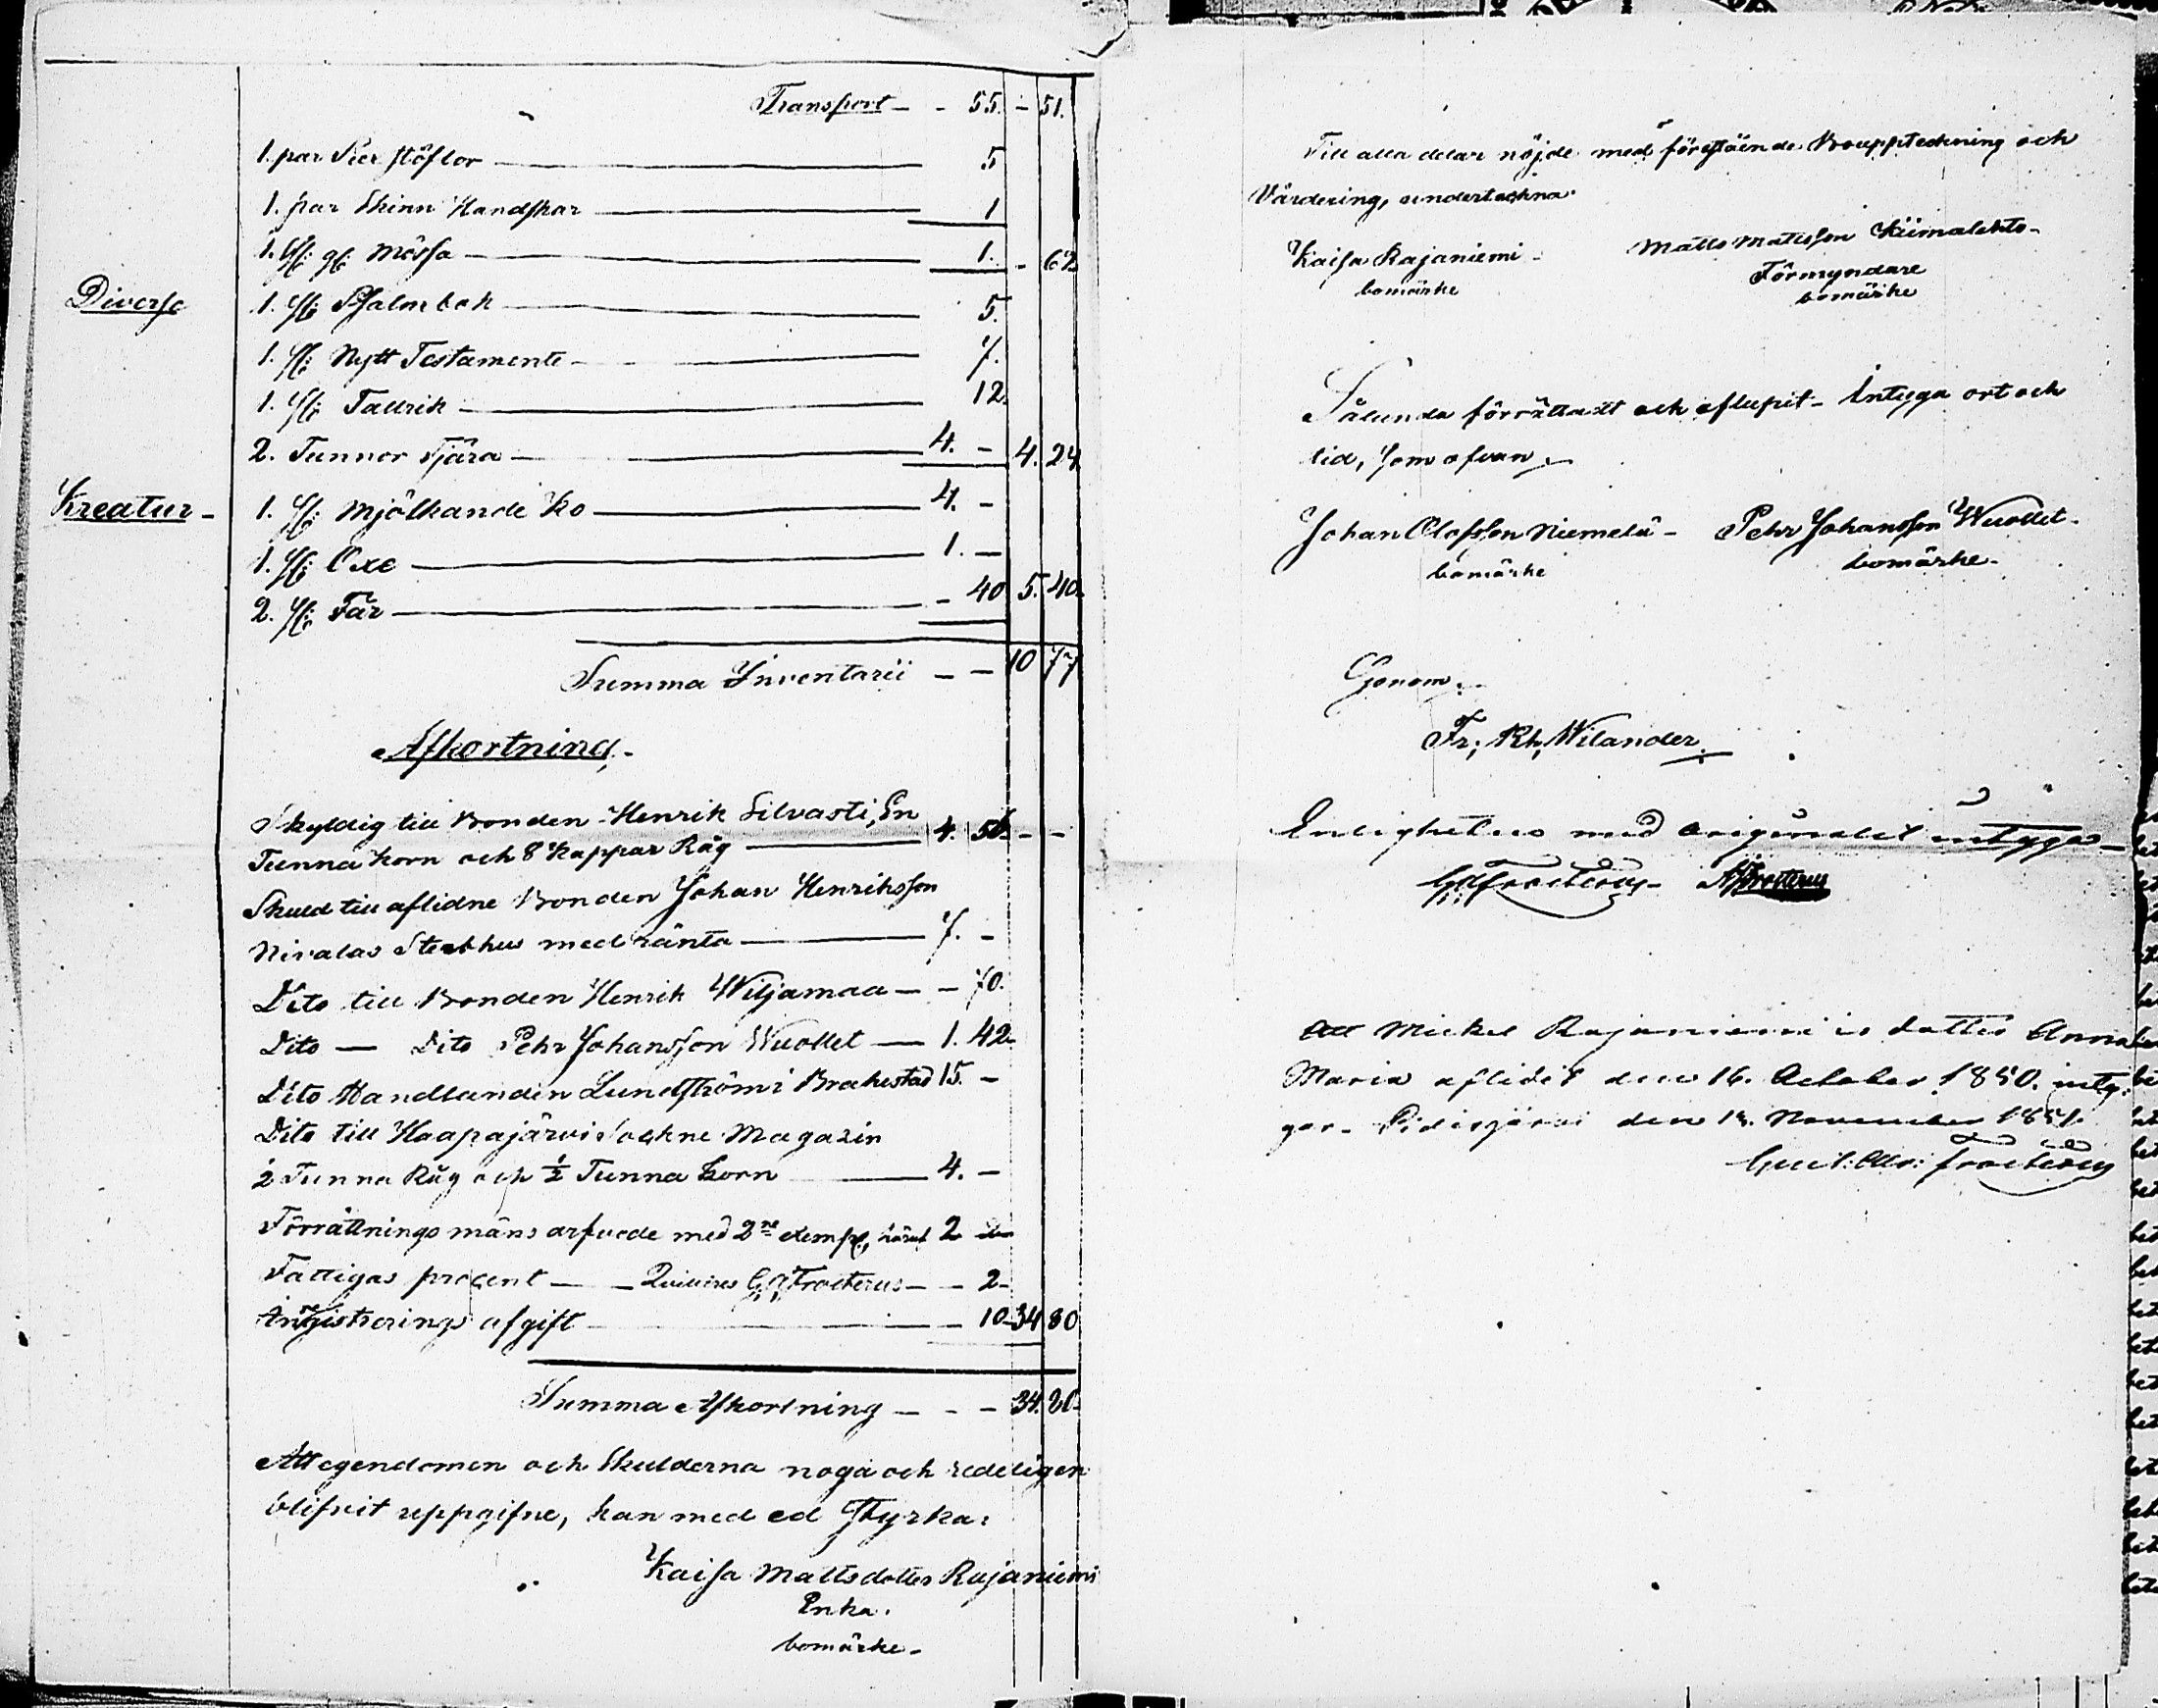 Transport - - 55. - 51.
1. par Pier stöflor 5
1. par Skinn Handskar 1
1. st: gl: Mössa 1. - 62
Diverse 1. st: Psalmbok 5.
1. st: Nytt Testamente 7.
1. st: Tallrik 12.
2. Tunnor Tjära 4. - 4. 24
Kreatur - 1. st: Mjölkande Ko 4. -
1. st: Oxe 1. -
2. st: Får - 40 5. 40.
Summa Inventarii - - 10 77
Afkortning.
Skyldig till Bonden Henrik Silvasti, En
Tunna korn och 8 Kappar Råg 4. 56. - -
Skuld till aflidne Bonden Johan Henriksson
Nivalas Sterbhus med ränta 7. -
Dito till Bonden Henrik Wiljamaa - - 70.
Dito - Dito Pehr Johansson Wuollet - 1. 42.
Dito Handlanden Lundström i Brahestad 15. -
Dito till Haapajärvi Sockne Magazin
½ Tunna Råg och ½ Tunna korn 4. -
Förrättnings mäns arfvode med 2ne exempl, häraf 2
Fattigas procent - - Quitteras G. A. Frosterus - - 2 -
Inregistrerings afgift - 10 34 80
Summa Afkortning - - - 34. 80.
Att egendomen och Skulderna noga och redeligen
blifvit uppgifne, kan med ed styrka:
Kaisa Mattsdotter Rajaniemi
Enka.
bomärke -
Till alla delar nöjde med förestående Bouppteckning och
Värdering, underteckna
Kaisa Rajaniemi - Matts Mattsson Kiimalehto -
bomärke Förmyndare
bomärke
Sålunda förrättadt och aflupit - Intyga ort och
tid, som ofvan.
Johan Olofsson Niemelä - Pehr Johansson Wuollet -
bomärke bomärke -
Genom.
Fr; Rh; Wilander.
Enligheten med originalet intyga -
G. A. Frosterus - A Frosterus
Att Mickel Rajaniemi's dotter Anna
Maria aflidit den 16. October 1850. inty-
gar. Pidisjärvi den November 1851.
Gust: Adr: Frosterus